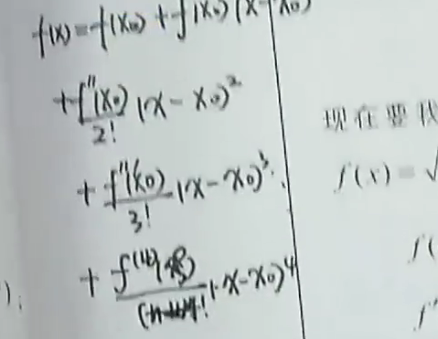 f(x)=f(x₀)+f'(x₀)(x-x₀)
+f''(x₀)/2! (x-x₀)²
+f'''(x₀)/3! (x-x₀)³
+f⁽⁴⁾(ξ)/ (x-x₀)⁴
现在要
f(x)=√
f(
f'
);